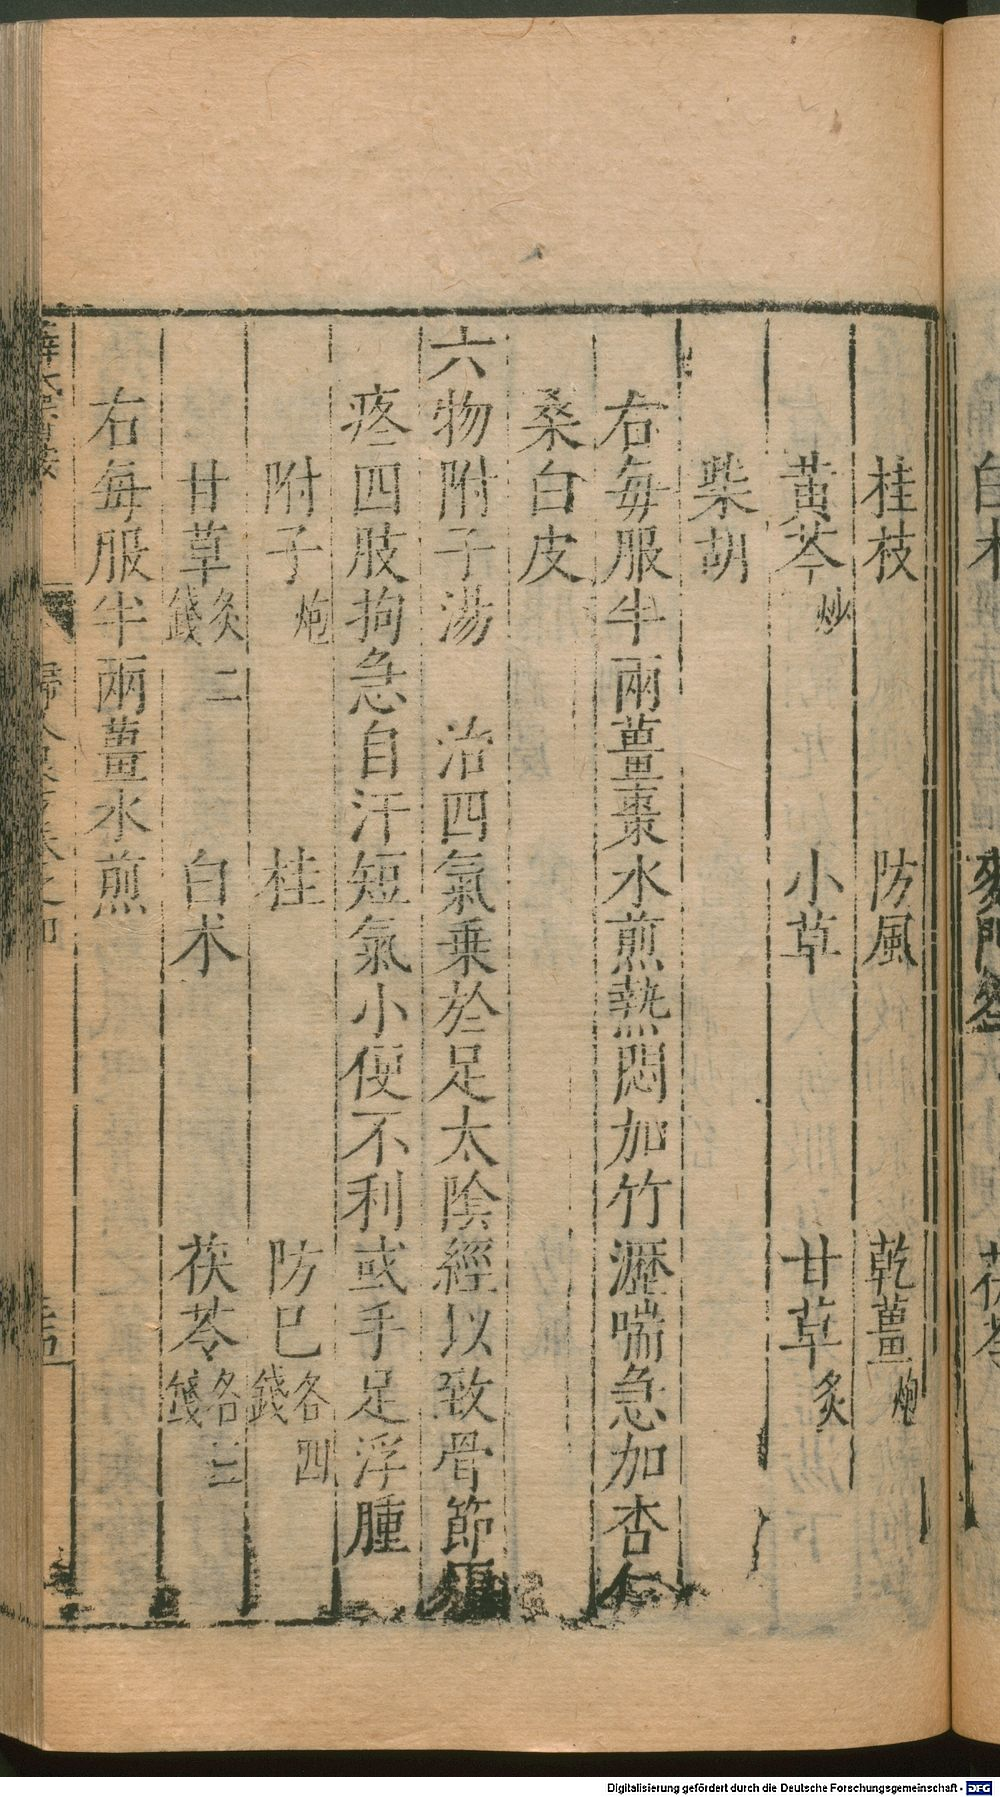 桂枝　防風　乾薑炮
黄芩炒　小草　甘草炙
柴胡
右每服半兩薑棗水煎熱悶加竹瀝喘急加杏仁
桑白皮
六物附子湯　治四氣乗於足太陰經以致骨節
疼四肢拘急自汗短氣小便不利或手足浮腫
附子炮　桂　防巳各四錢
甘草炙二錢　白术　茯苓各三錢
右每服半兩薑水煎
Digitalisierung gefördert durch die Deutsche Forschungsgemeinschaft - DFG